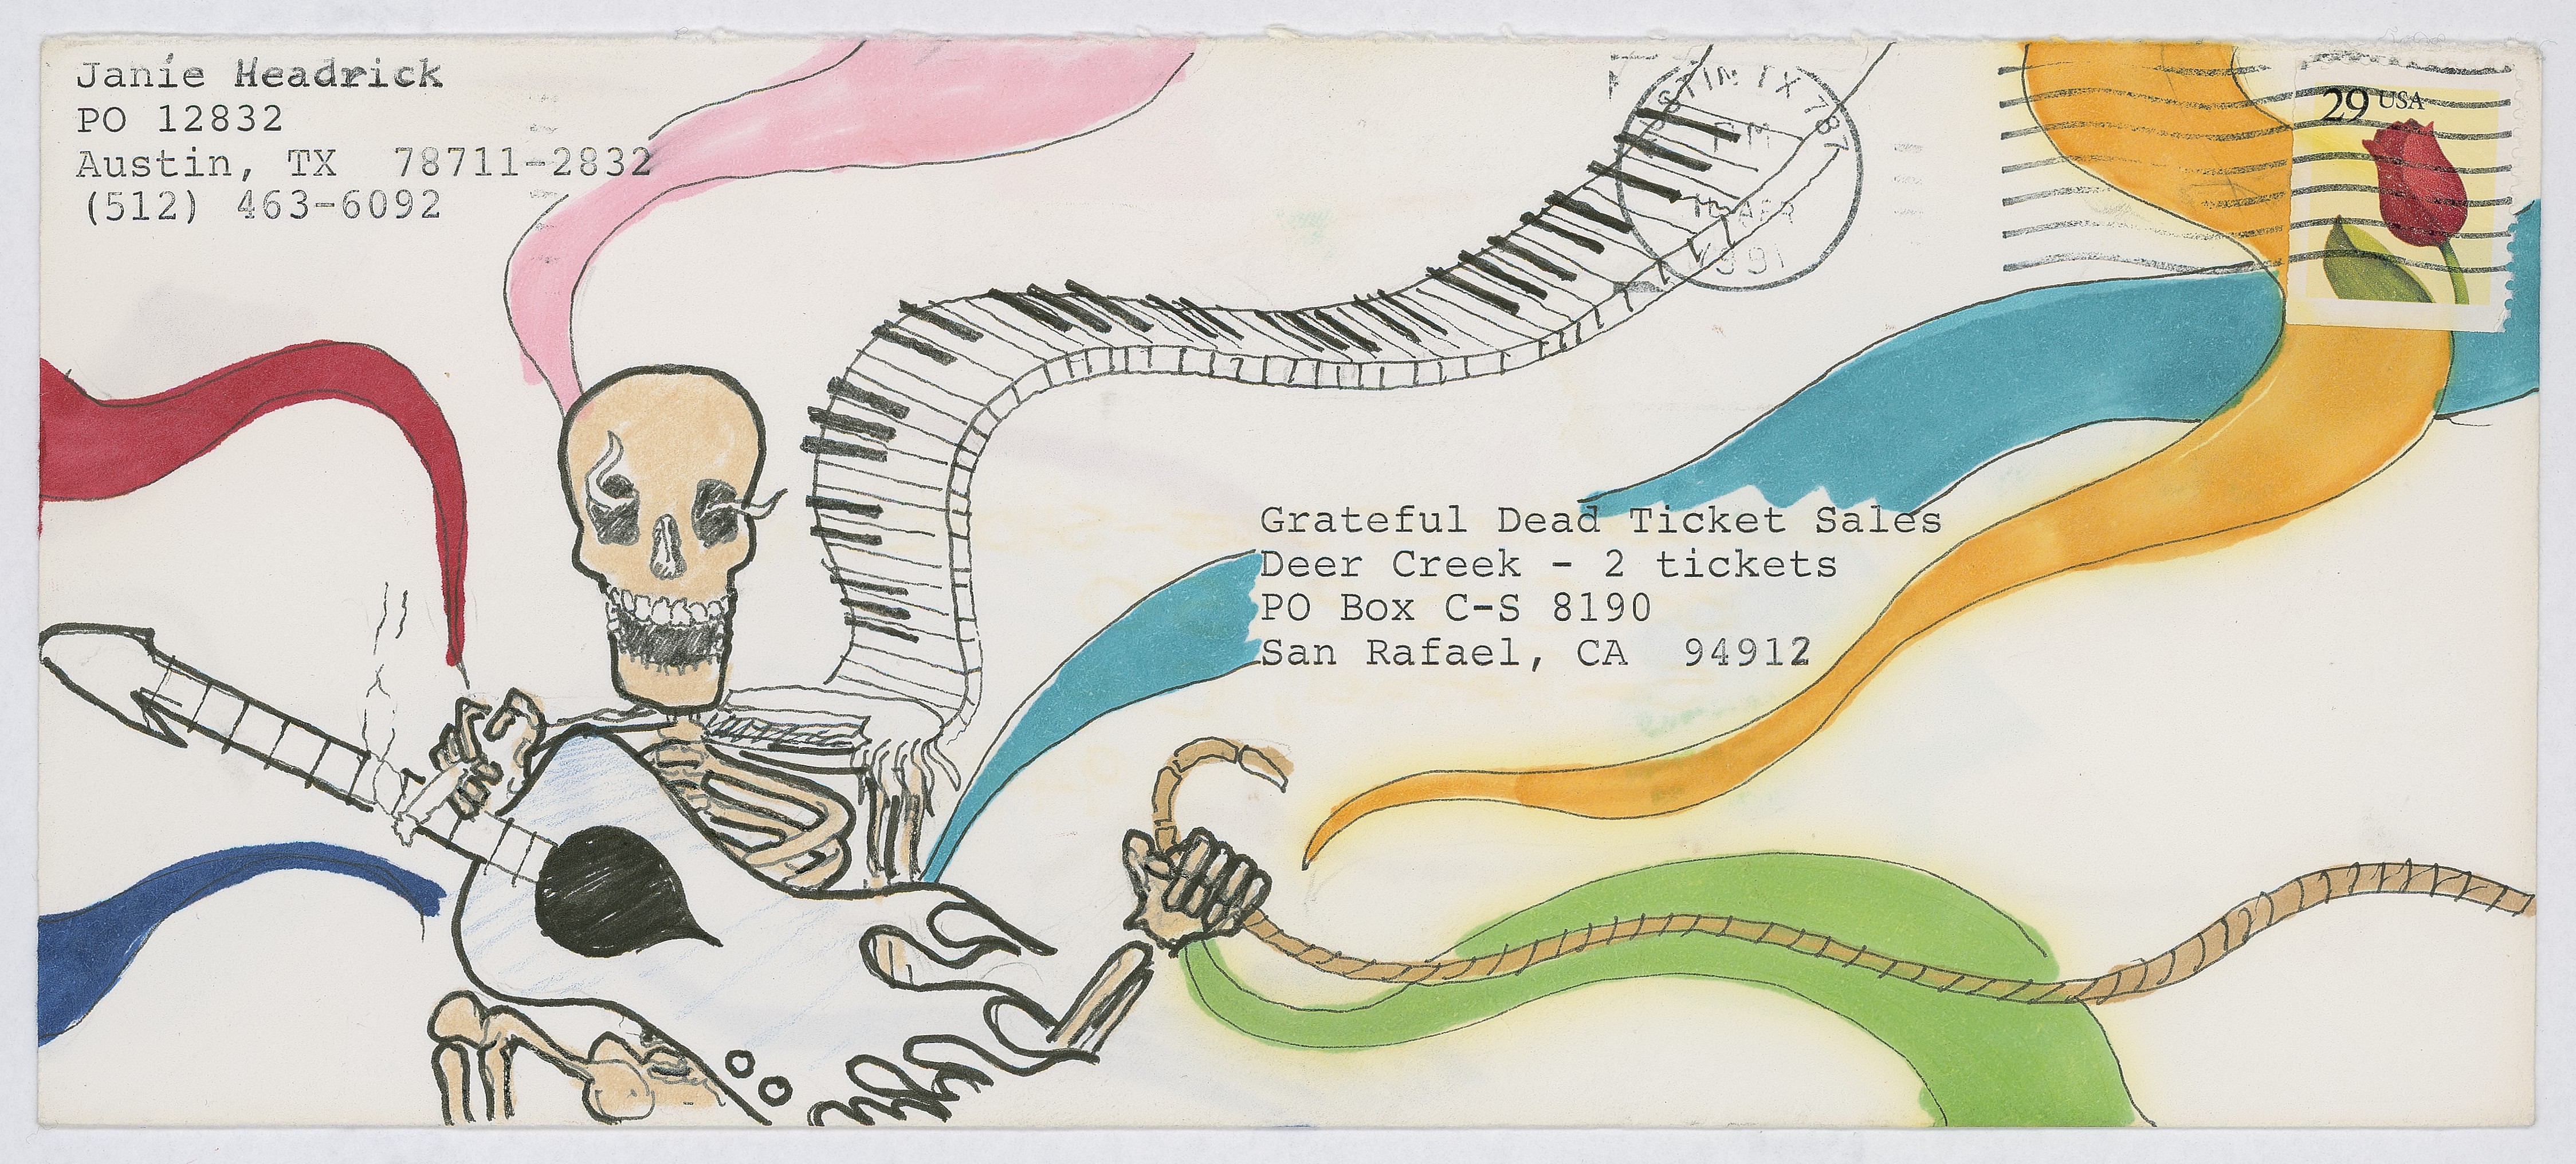 Janie Headrick
PO 12832
Austin, TX 78711-2832
(512) 463-6092
TIN TX 787
PM
APR
1991
29 USA
Grateful Dead Ticket Sales
Deer Creek - 2 tickets
PO Box C-S 8190
San Rafael, CA 94912